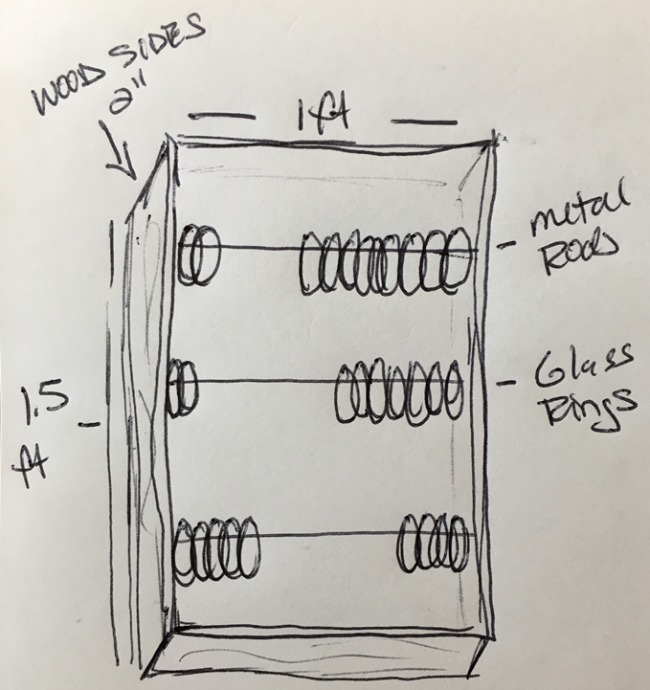 WOOD SIDES
2"
1ft
metal
Rods
Glass
Rings
1.5
ft